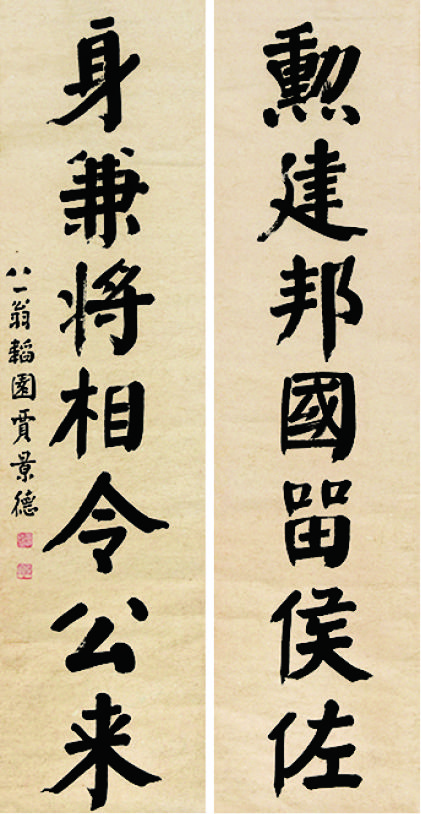 勳建邦國留侯佐
身兼将相令公来
八一翁韜園賈景德